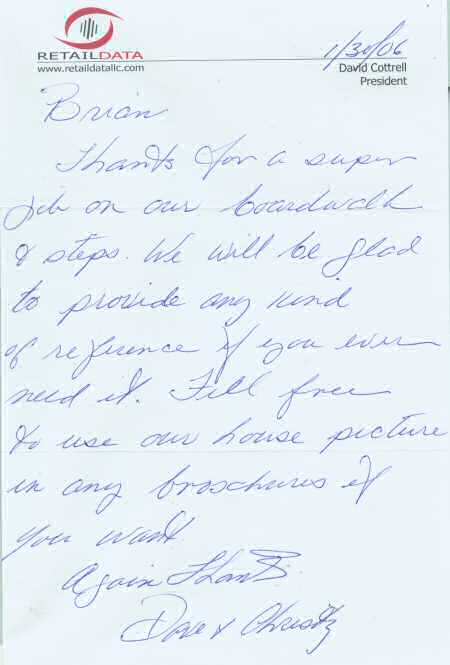 RETAILDATA
www.retaildatallc.com
1/30/06
David Cottrell
President
Brian
Thanks for a super
job on our boardwalk
& steps. We will be glad
to provide any kind
of reference if you ever
need it. Fill free
to use our house picture
in any broschures if
you want.
Again Thanks.
Dave & Christy